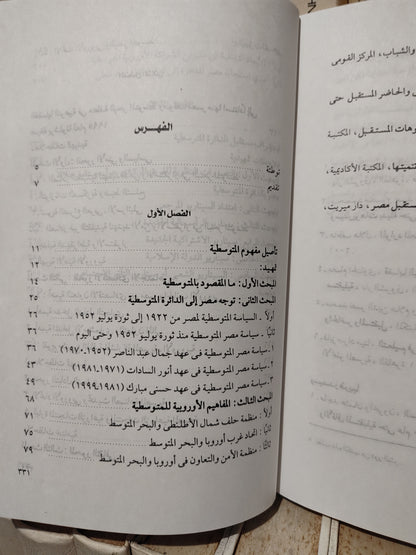 الفهرس
توطئة ٥
تقديم ٧
الفصل الأول
تأصيل مفهوم المتوسطية ١١
تمهيد: ١٢
المبحث الأول: ما المقصود بالمتوسطية ١٤
المبحث الثانى: توجه مصر إلى الدائرة المتوسطية ٢٥
أولاً ـ السياسة المتوسطية لمصر من ١٩٢٢ إلى ثورة يوليو ١٩٥٢ ٢٦
ثانيًا ـ سياسة مصر المتوسطية منذ ثورة يوليو ١٩٥٢ وحتى اليوم ٣٦
١ ـ سياسة مصر المتوسطية فى عهد جمال عبد الناصر (١٩٥٢ـ١٩٧٠) ٣٦
٢ ـ سياسة مصر المتوسطية فى عهد أنور السادات (١٩٧١ـ١٩٨١) ٤٣
٣ ـ سياسة مصر المتوسطية فى عهد حسنى مبارك (١٩٨١ـ١٩٩٩) ٤٩
المبحث الثالث: المفاهيم الأوروبية للمتوسطية ٦٨
أولاً: منظمة حلف شمال الأطلنطى والبحر المتوسط ٧١
ثانيًا: اتحاد غرب أوروبا والبحر المتوسط ٧٥
ثالثًا: منظمة الأمن والتعاون فى أوروبا والبحر المتوسط ٧٩
٣٣١
والشباب، المركز القومى
والحاضر المستقبل حتى
المستقبل، المكتبة
تنميتها، المكتبة الأكاديمية،
مستقبل مصر، دار ميريت،